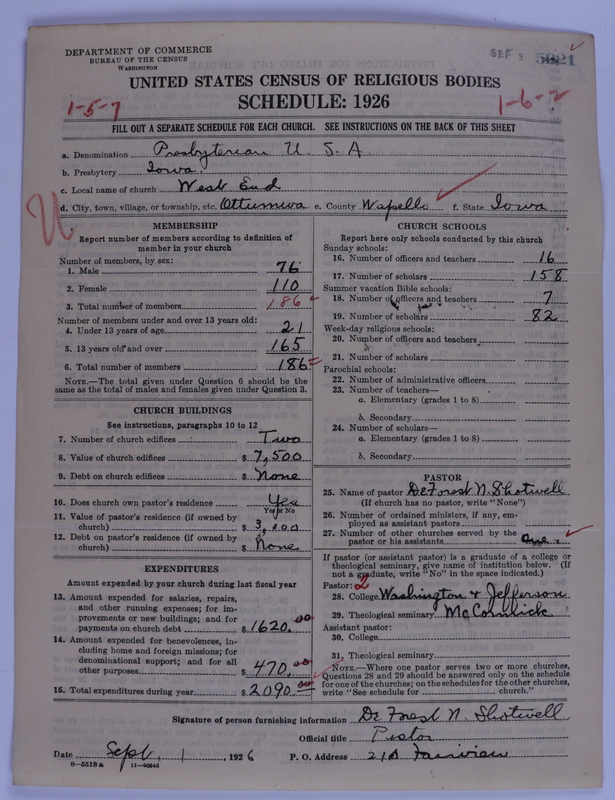 DEPARTMENT OF COMMERCE
BUREAU OF THE CENSUS
WASHINGTON
SEP 3 5921
UNITED STATES CENSUS OF RELIGIOUS BODIES
SCHEDULE: 1926
1-5-7
1-6-2
FILL OUT A SEPARATE SCHEDULE FOR EACH CHURCH. SEE INSTRUCTIONS ON THE BACK OF THIS SHEET
a. Denomination Presbyterian U. S. A
b. Presbytery Iowa.
c. Local name of church West End
d. City, town, village, or township, etc. Ottumwa e. County Wapello f. State Iowa
MEMBERSHIP
Report number of members according to definition of
member in your church
Number of members, by sex:
1. Male 76
2. Female 110
3. Total number of members 186
Number of members under and over 13 years old:
4. Under 13 years of age 21
5. 13 years old and over 165
6. Total number of members 186
NOTE.—The total given under Question 6 should be the
same as the total of males and females given under Question 3.
CHURCH BUILDINGS
See instructions, paragraphs 10 to 12
7. Number of church edifices Two
8. Value of church edifices $ 7,500
9. Debt on church edifices $ None
10. Does church own pastor's residence Yes
Yes or No
11. Value of pastor's residence (if owned by
church) $ 3,000
12. Debt on pastor's residence (if owned by
church) $ None
EXPENDITURES
Amount expended by your church during last fiscal year
13. Amount expended for salaries, repairs,
and other running expenses; for im-
provements or new buildings; and for
payments on church debt $ 1620.00
14. Amount expended for benevolences, in-
cluding home and foreign missions; for
denominational support; and for all
other purposes $ 470.00
15. Total expenditures during year $ 2090.00
CHURCH SCHOOLS
Report here only schools conducted by this church
Sunday schools:
16. Number of officers and teachers 16
17. Number of scholars 158
Summer vacation Bible schools:
18. Number of officers and teachers 7
19. Number of scholars 82
Week-day religious schools:
20. Number of officers and teachers
21. Number of scholars
Parochial schools:
22. Number of administrative officers
23. Number of teachers—
a. Elementary (grades 1 to 8)
b. Secondary
24. Number of scholars—
a. Elementary (grades 1 to 8)
b. Secondary
PASTOR
25. Name of pastor DeForest N. Shotwell
(If church has no pastor, write "None")
26. Number of ordained ministers, if any, em-
ployed as assistant pastors
27. Number of other churches served by the
pastor or his assistants One
If pastor (or assistant pastor) is a graduate of a college or
theological seminary, give name of institution below. (If
not a graduate, write "No" in the space indicated.)
Pastor: 2
28. College Washington & Jefferson
29. Theological seminary McCormick
Assistant pastor:
30. College
31. Theological seminary
NOTE.—Where one pastor serves two or more churches,
Questions 28 and 29 should be answered only on the schedule
for one of the churches; on the schedules for the other churches,
write "See schedule for church."
Signature of person furnishing information De Forest N. Shotwell
Official title Pastor
Date Sept. 1, 1926 P. O. Address 210 Fairview
8—5518 a